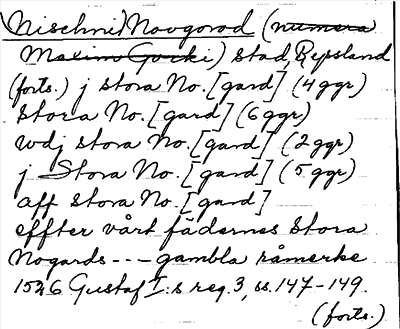 (Nischni) Novgorod (numera
Maxim Gorki) stad, Ryssland
(forts.) j stora No.[gard] (4 ggr)
stora No.[gard] (6 ggr)
wdj stora No.[gard] (2 ggr)
j Stora No.[gard] (5 ggr)
aff stora No.[gard]
effter vårt fädernes Stora
Nogards --- gambla råmerke
1526 Gustaf I:s reg. 3, ss. 147-149.
(forts.)